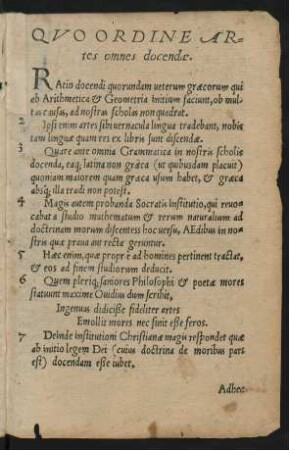 QVO ORDINE AR-
tes omnes docendæ.
RAtio docendi quorundam ueterum græcorum qui
ab Arithmetica & Geometria initium faciunt, ob mul-
tas causas, ad nostras scholas non quadrat.
2 Ipsi enim artes sibi uernacula lingua tradebant, nobis
tam linguæ quam res ex libris sunt discendæ.
3 Quare ante omnia Grammatica in nostris scholis
docenda, eaq; latina non græca (ut quibusdam placuit)
quoniam maiorem quam græca usum habet, & græca
absq; illa tradi non potest.
4 Magis autem probanda Socratis institutio, qui reuo-
cabat a studio mathematum & rerum naturalium ad
doctrinam morum discentes hoc uersu, AEdibus in no-
stris quæ praua aut recta geruntur.
5 Hæc enim, quæ propriè ad homines pertinent tractat,
& eos ad finem studiorum deducit.
6 Quem pleriq; saniores Philosophi & poetæ mores
statuunt maxime Ouidius dum scribit,
Ingenuas didicisse fideliter artes
Emollit mores nec sinit esse feros.
7 Deinde institutioni Christianæ magis respondet quæ
ab initio legem Dei (cuius doctrina de moribus pars
est) docendam esse iubet.
Adhec